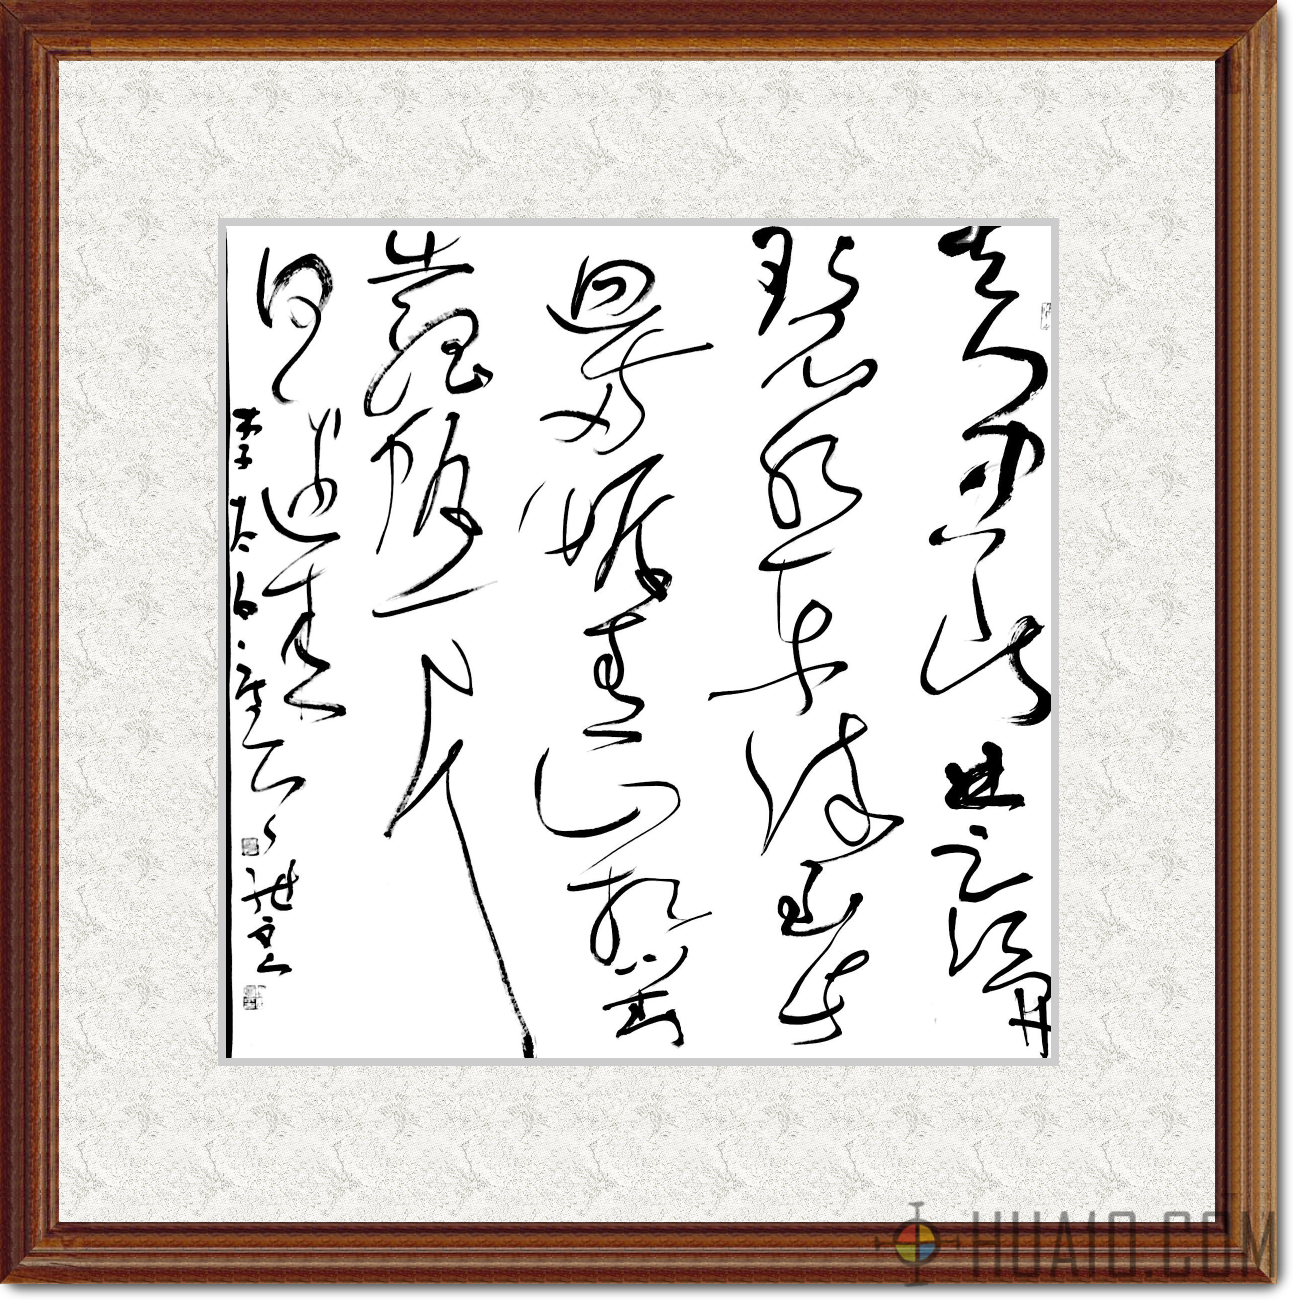 天門中斷楚江開
碧水東流至此
回兩岸青山相對
出孤帆一片
日邊來
李太白
HUA10.COM